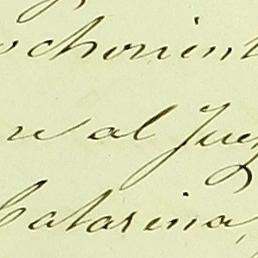 ochorient
re al Juez
Catarina